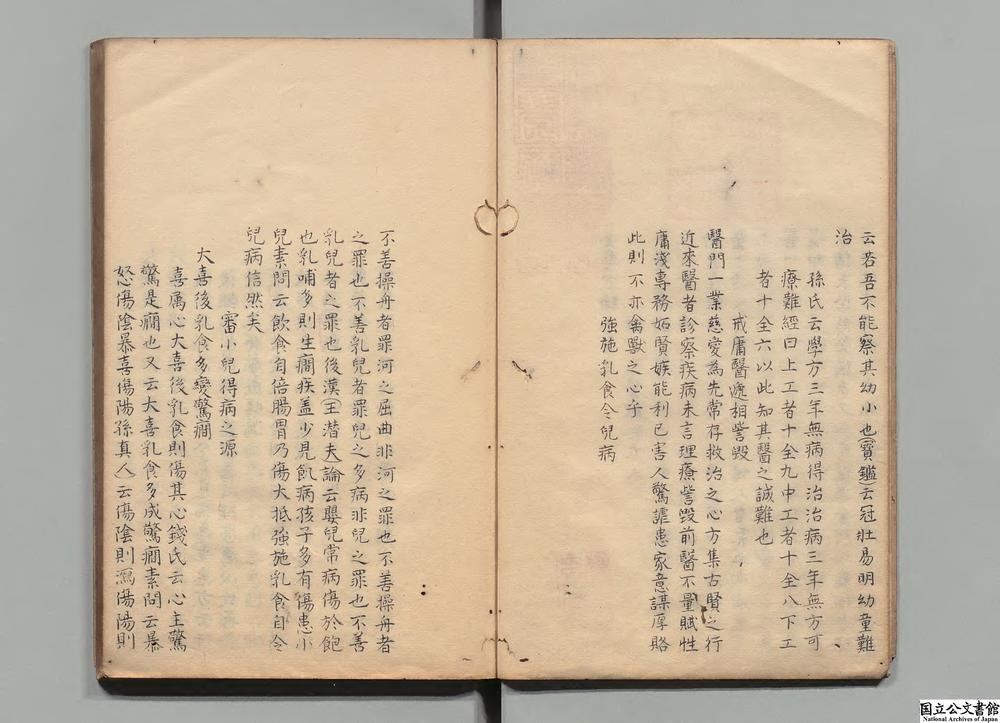 云若吾不能察其幼小也寶鑑云冠壯易明幼童難
治
孫氏云學方三年無病得治治病三年無方可
療難經曰上工者十全九中工者十全八下工
者十全六以此知其醫之誠難也
戒庸醫遞相訾毀
醫門一業慈愛為先常存救治之心方集古賢之行
近來醫者診察疾病未言理療訾毀前醫不量賦性
庸淺專務妬賢嫉能利己害人驚謔患家意謀厚賂
此則不亦禽獸之心乎
強施乳食令兒病
不善操舟者罪河之屈曲非河之罪也不善操舟者
之罪也不善乳兒者罪兒之多病非兒之罪也不善
乳兒者之罪也後漢王潛夫論云嬰兒常病傷於飽
也乳哺多則生癇疾盖少見飢病孩子多有傷患小
兒素問云飲食自倍腸胃乃傷大抵強施乳食自令
兒病信然矣
審小兒得病之源
大喜後乳食多變驚癇
喜属心大喜後乳食則傷其心錢氏云心主驚
驚是癇也又云大喜乳食多成驚癇素問云暴
怒傷陰暴喜傷陽孫真人云傷陰則瀉傷陽則
国立公文書館
National Archives of Japan